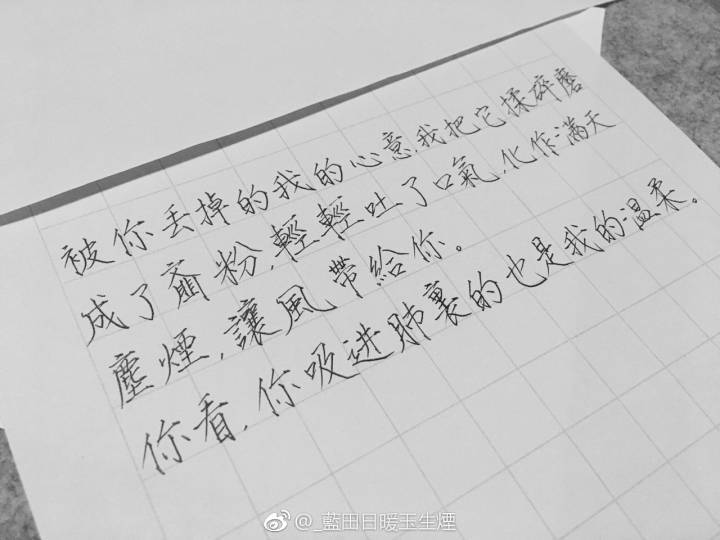 被你丢掉的我的心意,我把它揉碎磨
成了齑粉,輕輕吐了口氣,化作滿天
塵煙,讓風帶給你。
你看,你吸进肺裏的也是我的温柔。
@_藍田日暖玉生煙